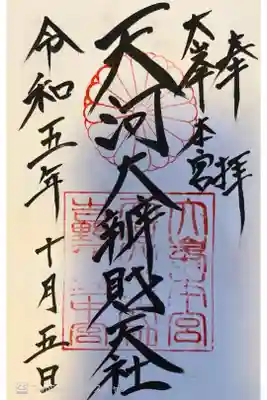 奉拝
大峯本宮
天河大辨財天社
令和五年十月五日
大峯本宮